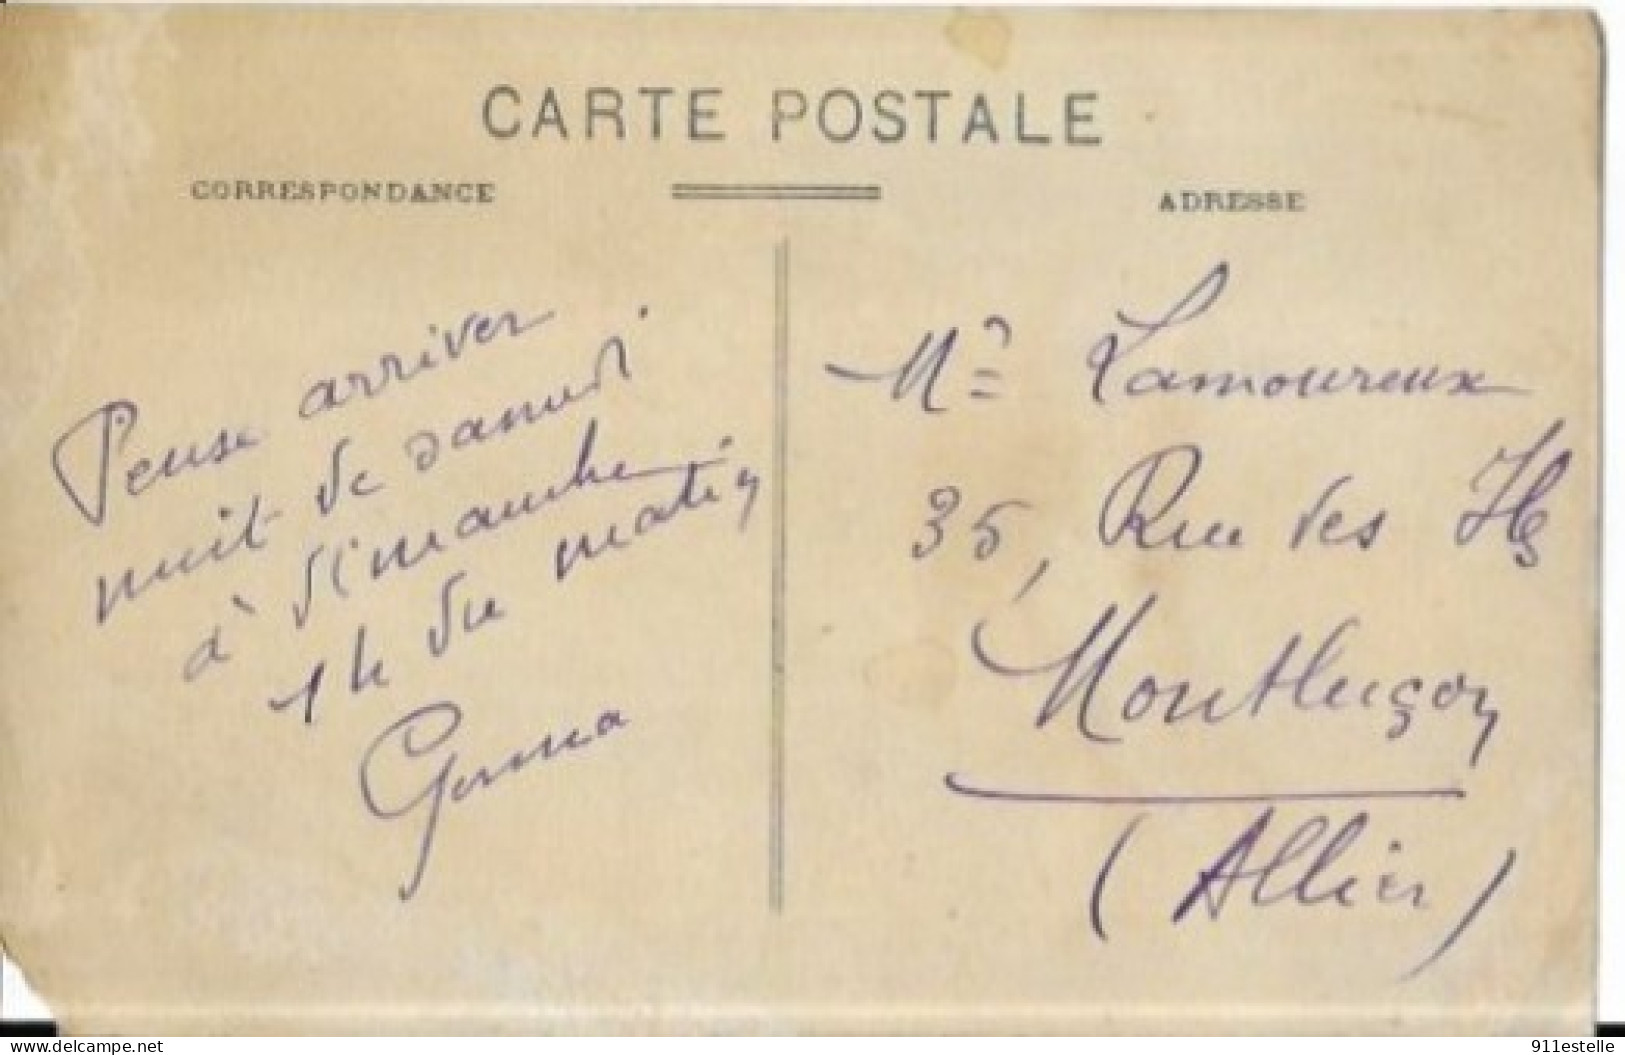 CARTE POSTALE
CORRESPONDANCE
ADRESSE
Pense arriver
nuit de samedi
à dimanche.
1h du matin
Mе Lamoureux
35, Rue des
Montluçon
(Allier)
www.delcampe.com
911estelle